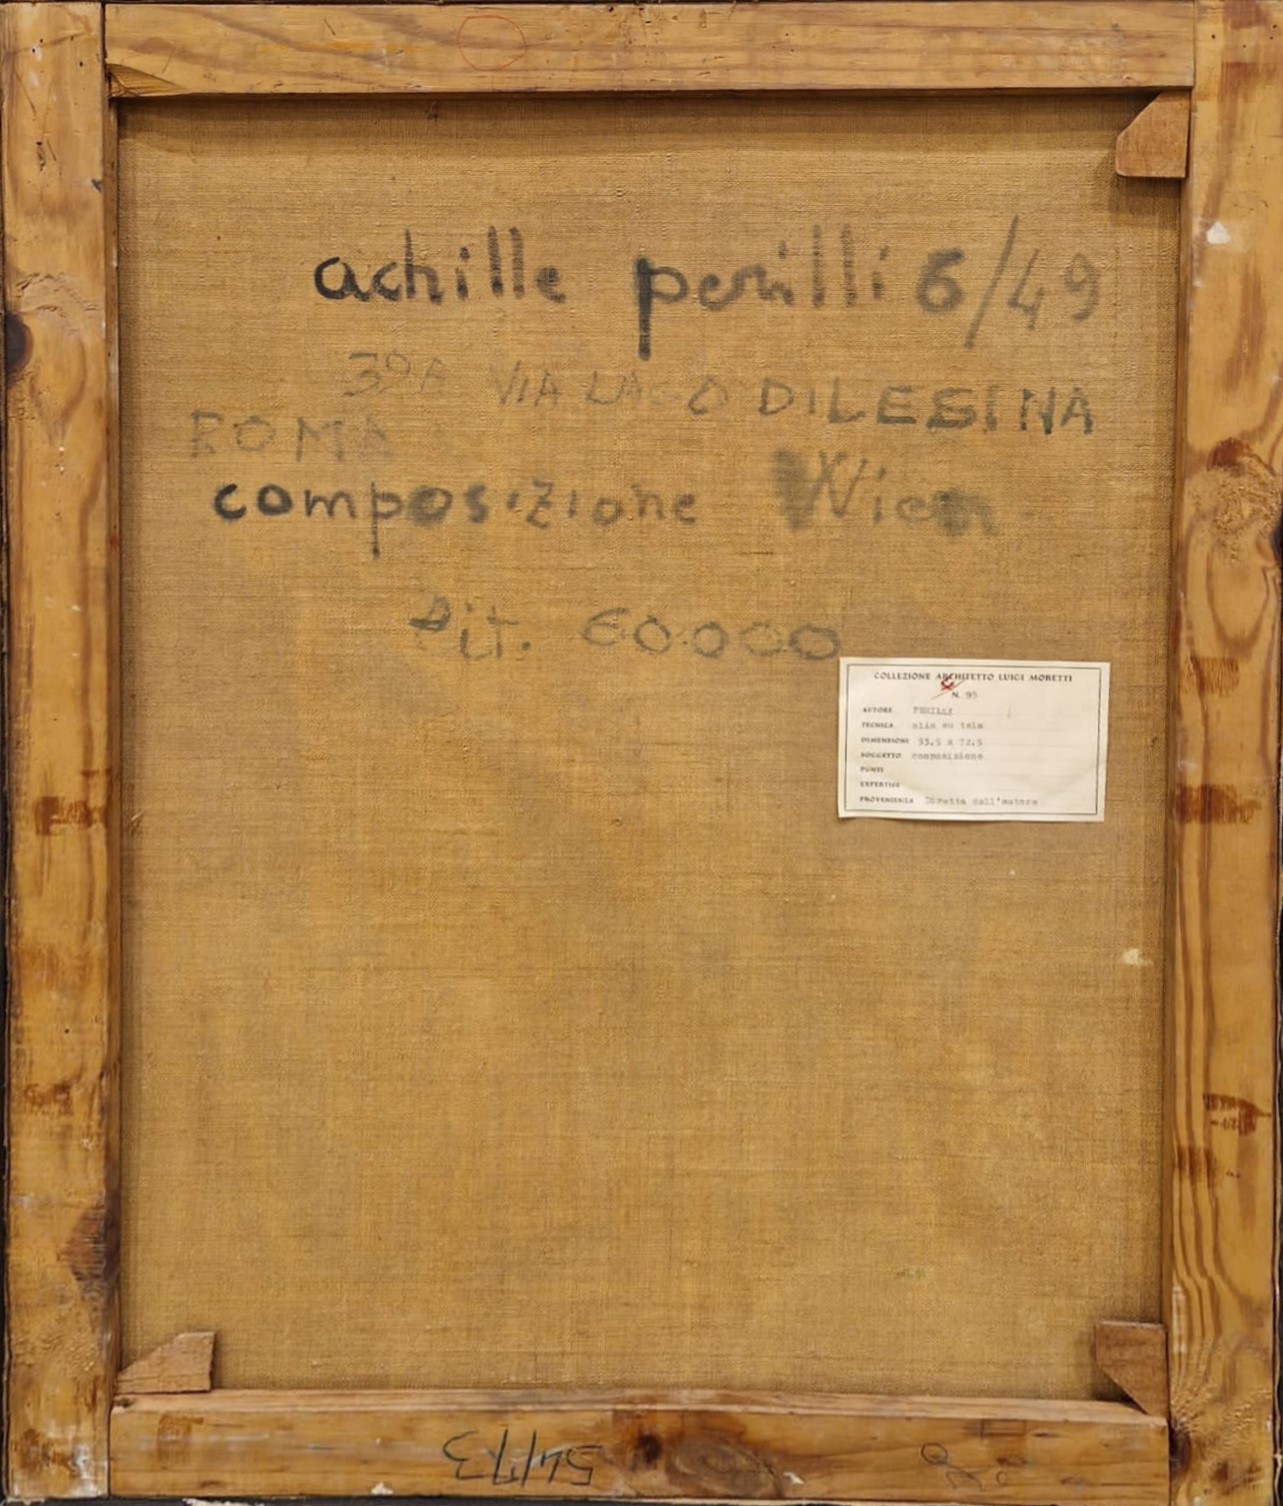 achille perilli 6/49
VIA LAGO DI LESINA
ROMA
composizione Wien
60000
COLLEZIONE ARCHITETTO LUIGI MORETTI
N. 95
AUTORE
TECNICA olio su tela
DIMENSIONI 53,5 x 72,5
SOGGETTO composizione
PUNTI
EXPERTISE
PROVENIENZA Diretta dall'autore
54/73